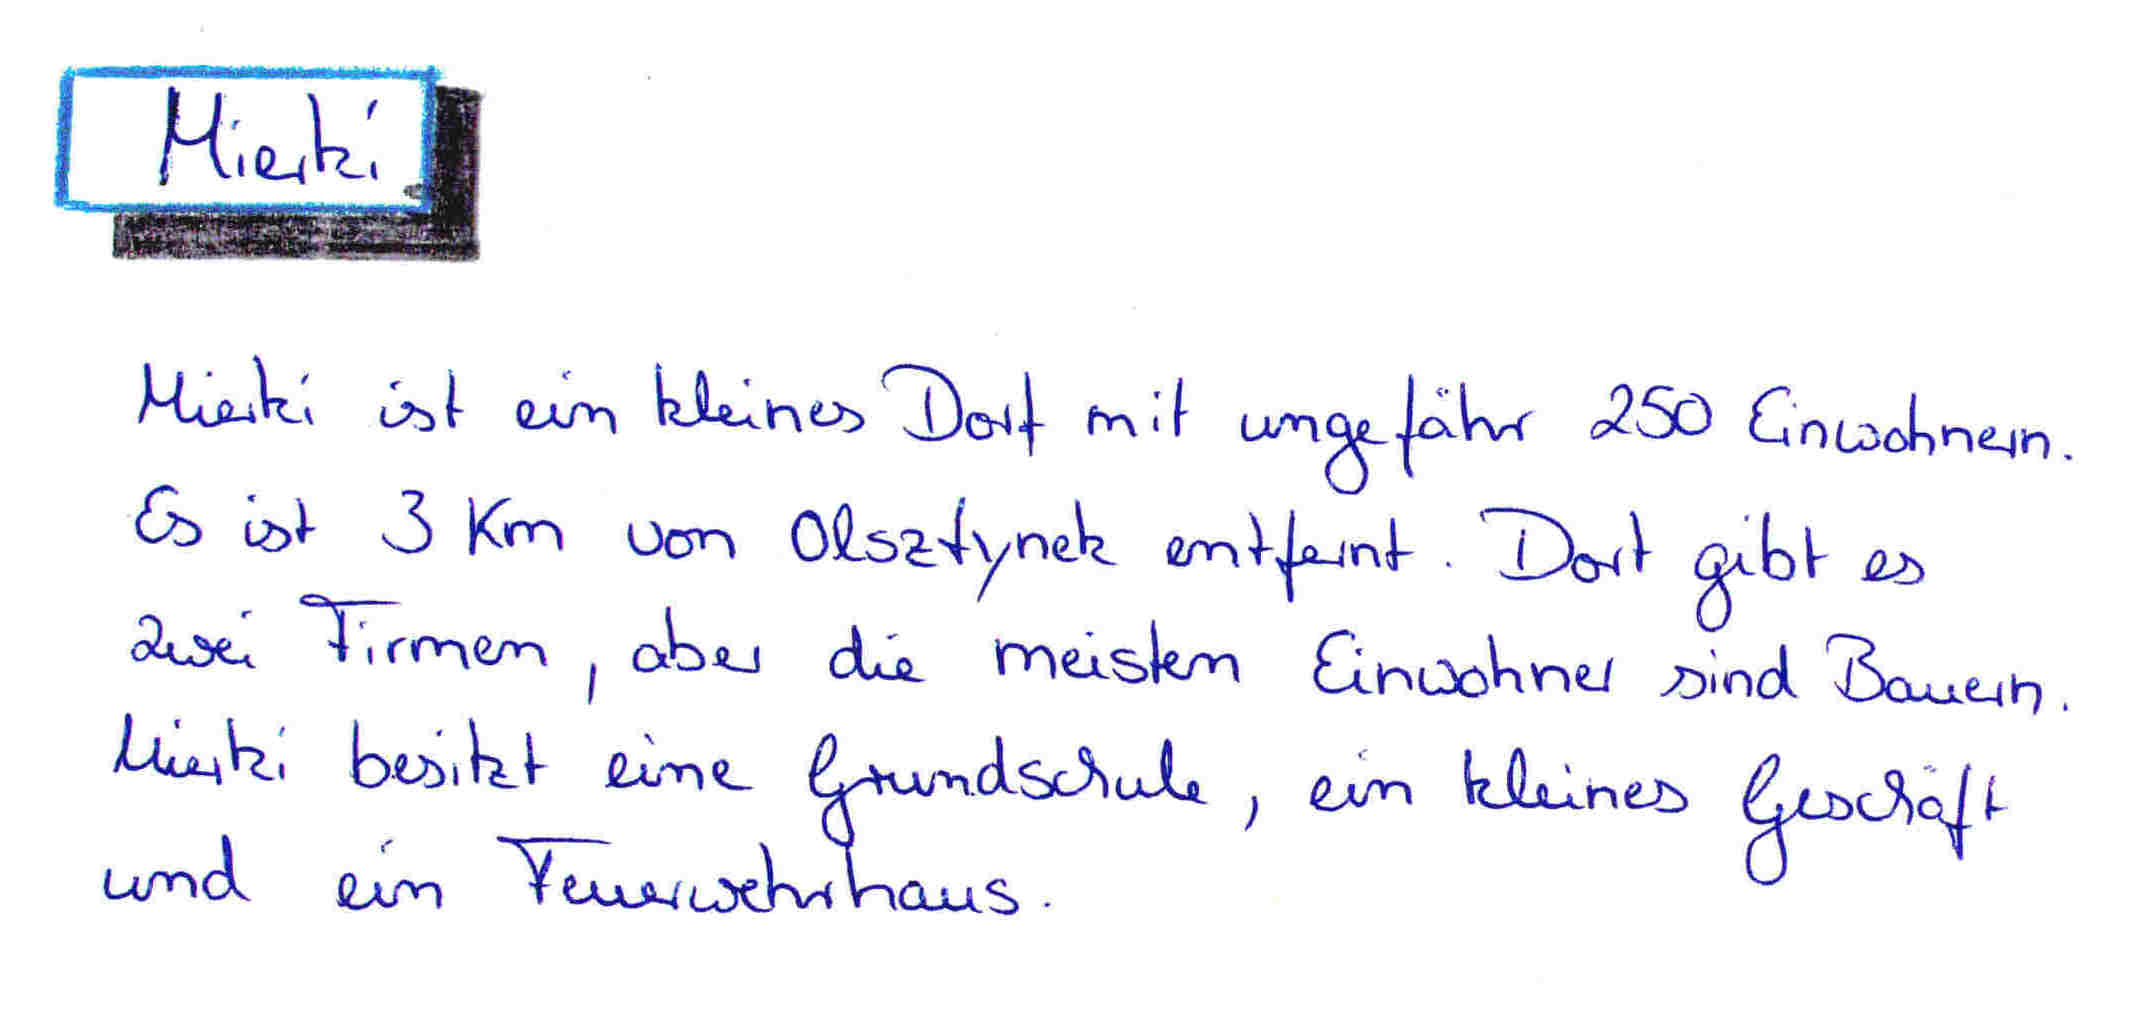 Mierki
Mierki ist ein kleines Dorf mit ungefähr 250 Einwohnern.
Es ist 3 Km von Olsztynek entfernt. Dort gibt es
zwei Firmen, aber die meisten Einwohner sind Bauern.
Mierki besitzt eine Grundschule, ein kleines Geschäft
und ein Feuerwehrhaus.